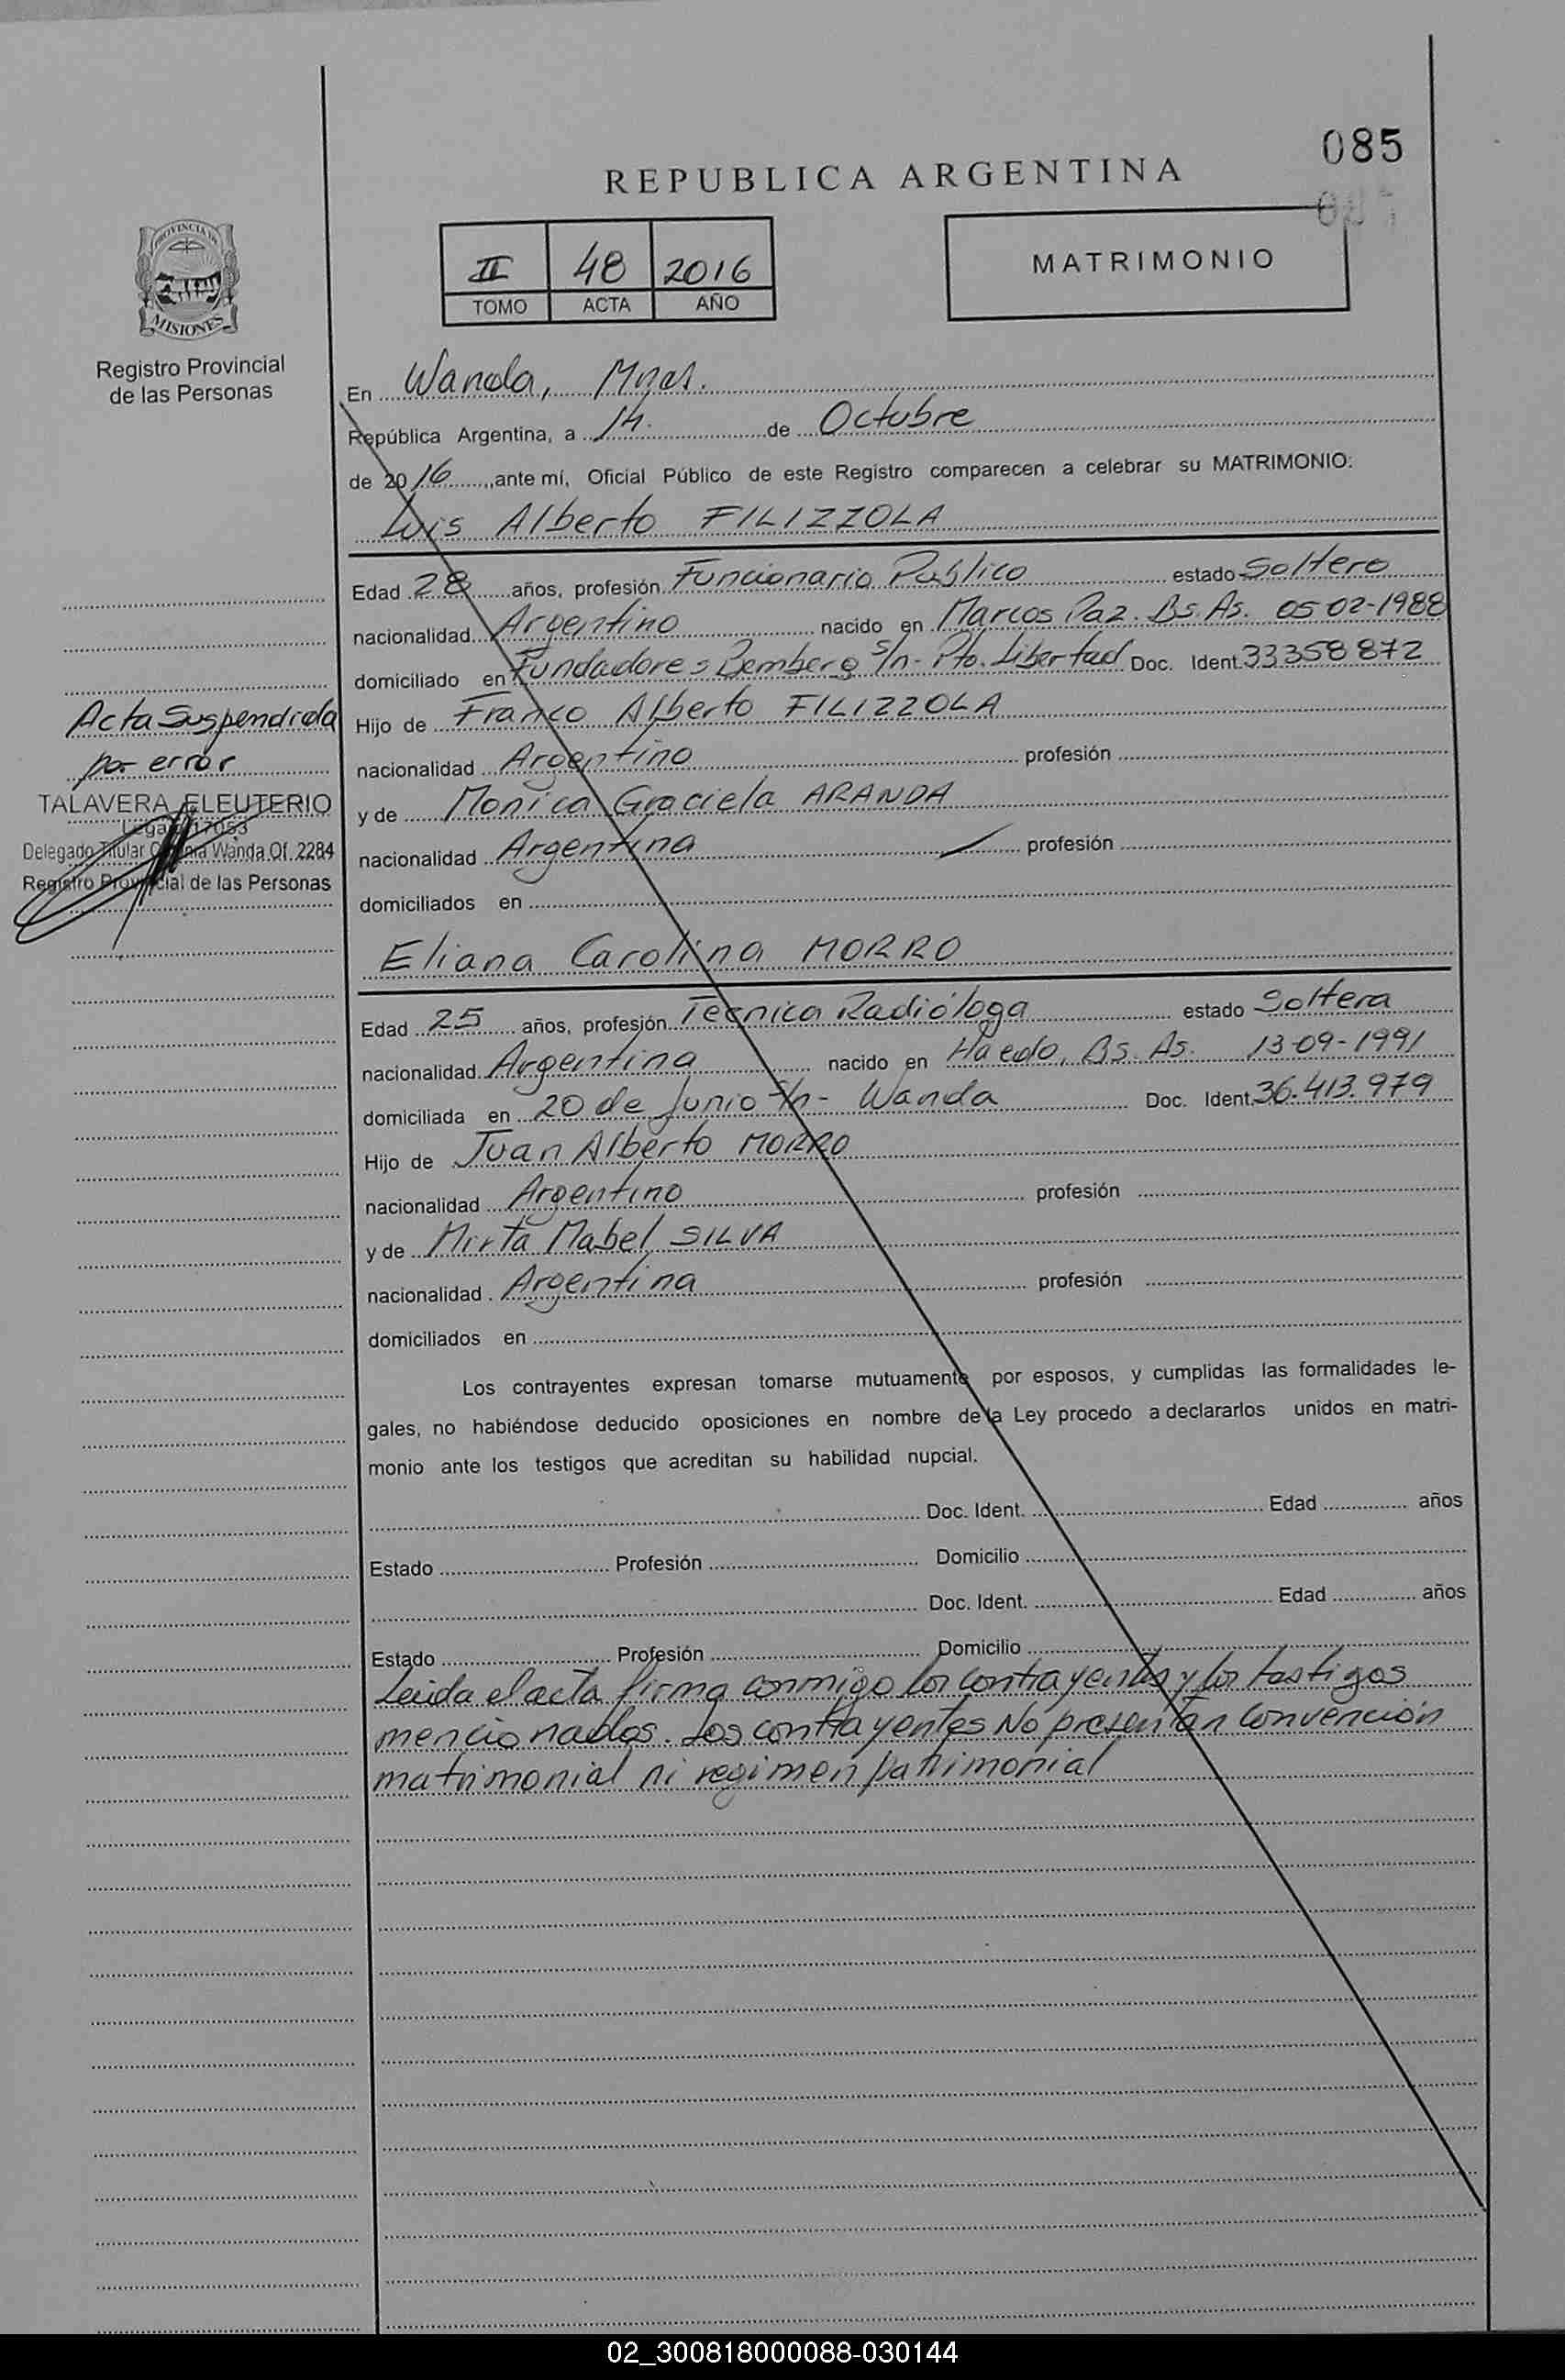 085
REPUBLICA ARGENTINA
PROVINCIA DE
MISIONES
Registro Provincial
de las Personas
II 48 2016
TOMO ACTA AÑO
MATRIMONIO
En Wanda, Mnes.
República Argentina, a 14. de Octubre
de 2016, ante mí, Oficial Público de este Registro comparecen a celebrar su MATRIMONIO:
Luis Alberto FILIZZOLA
Edad 28 años, profesión Funcionario Publico estado Soltero
nacionalidad Argentino nacido en Marcos Paz. Bs. As. 05-02-1988
domiciliado en Fundadores Bemberg s/n- Pto. Libertad Doc. Ident. 33358872
Hijo de Franco Alberto FILIZZOLA
nacionalidad Argentino profesión
y de Monica Graciela ARANDA
nacionalidad Argentina profesión
domiciliados en
Acta Suspendida
por error
TALAVERA ELEUTERIO
Legajo 17053
Delegado Titular Colonia Wanda Of. 2284
Registro Provincial de las Personas
Eliana Carolina MORRO
Edad 25 años, profesión Tecnica Radióloga estado Soltera
nacionalidad Argentina nacido en Haedo, Bs. As. 13-09-1991
domiciliada en 20 de Junio s/n- Wanda Doc. Ident. 36.413.979
Hijo de Juan Alberto MORRO
nacionalidad Argentino profesión
y de Mirta Mabel SILVA
nacionalidad Argentina profesión
domiciliados en
Los contrayentes expresan tomarse mutuamente por esposos, y cumplidas las formalidades le-
gales, no habiéndose deducido oposiciones en nombre de la Ley procedo a declararlos unidos en matri-
monio ante los testigos que acreditan su habilidad nupcial.
Doc. Ident. Edad años
Estado Profesión Domicilio
Doc. Ident. Edad años
Estado Profesión Domicilio
Leida el acta firma conmigo los contrayentes y los testigos
mencionados. Los contrayentes No presentan convención
matrimonial ni regimen patrimonial
02_300818000088-030144